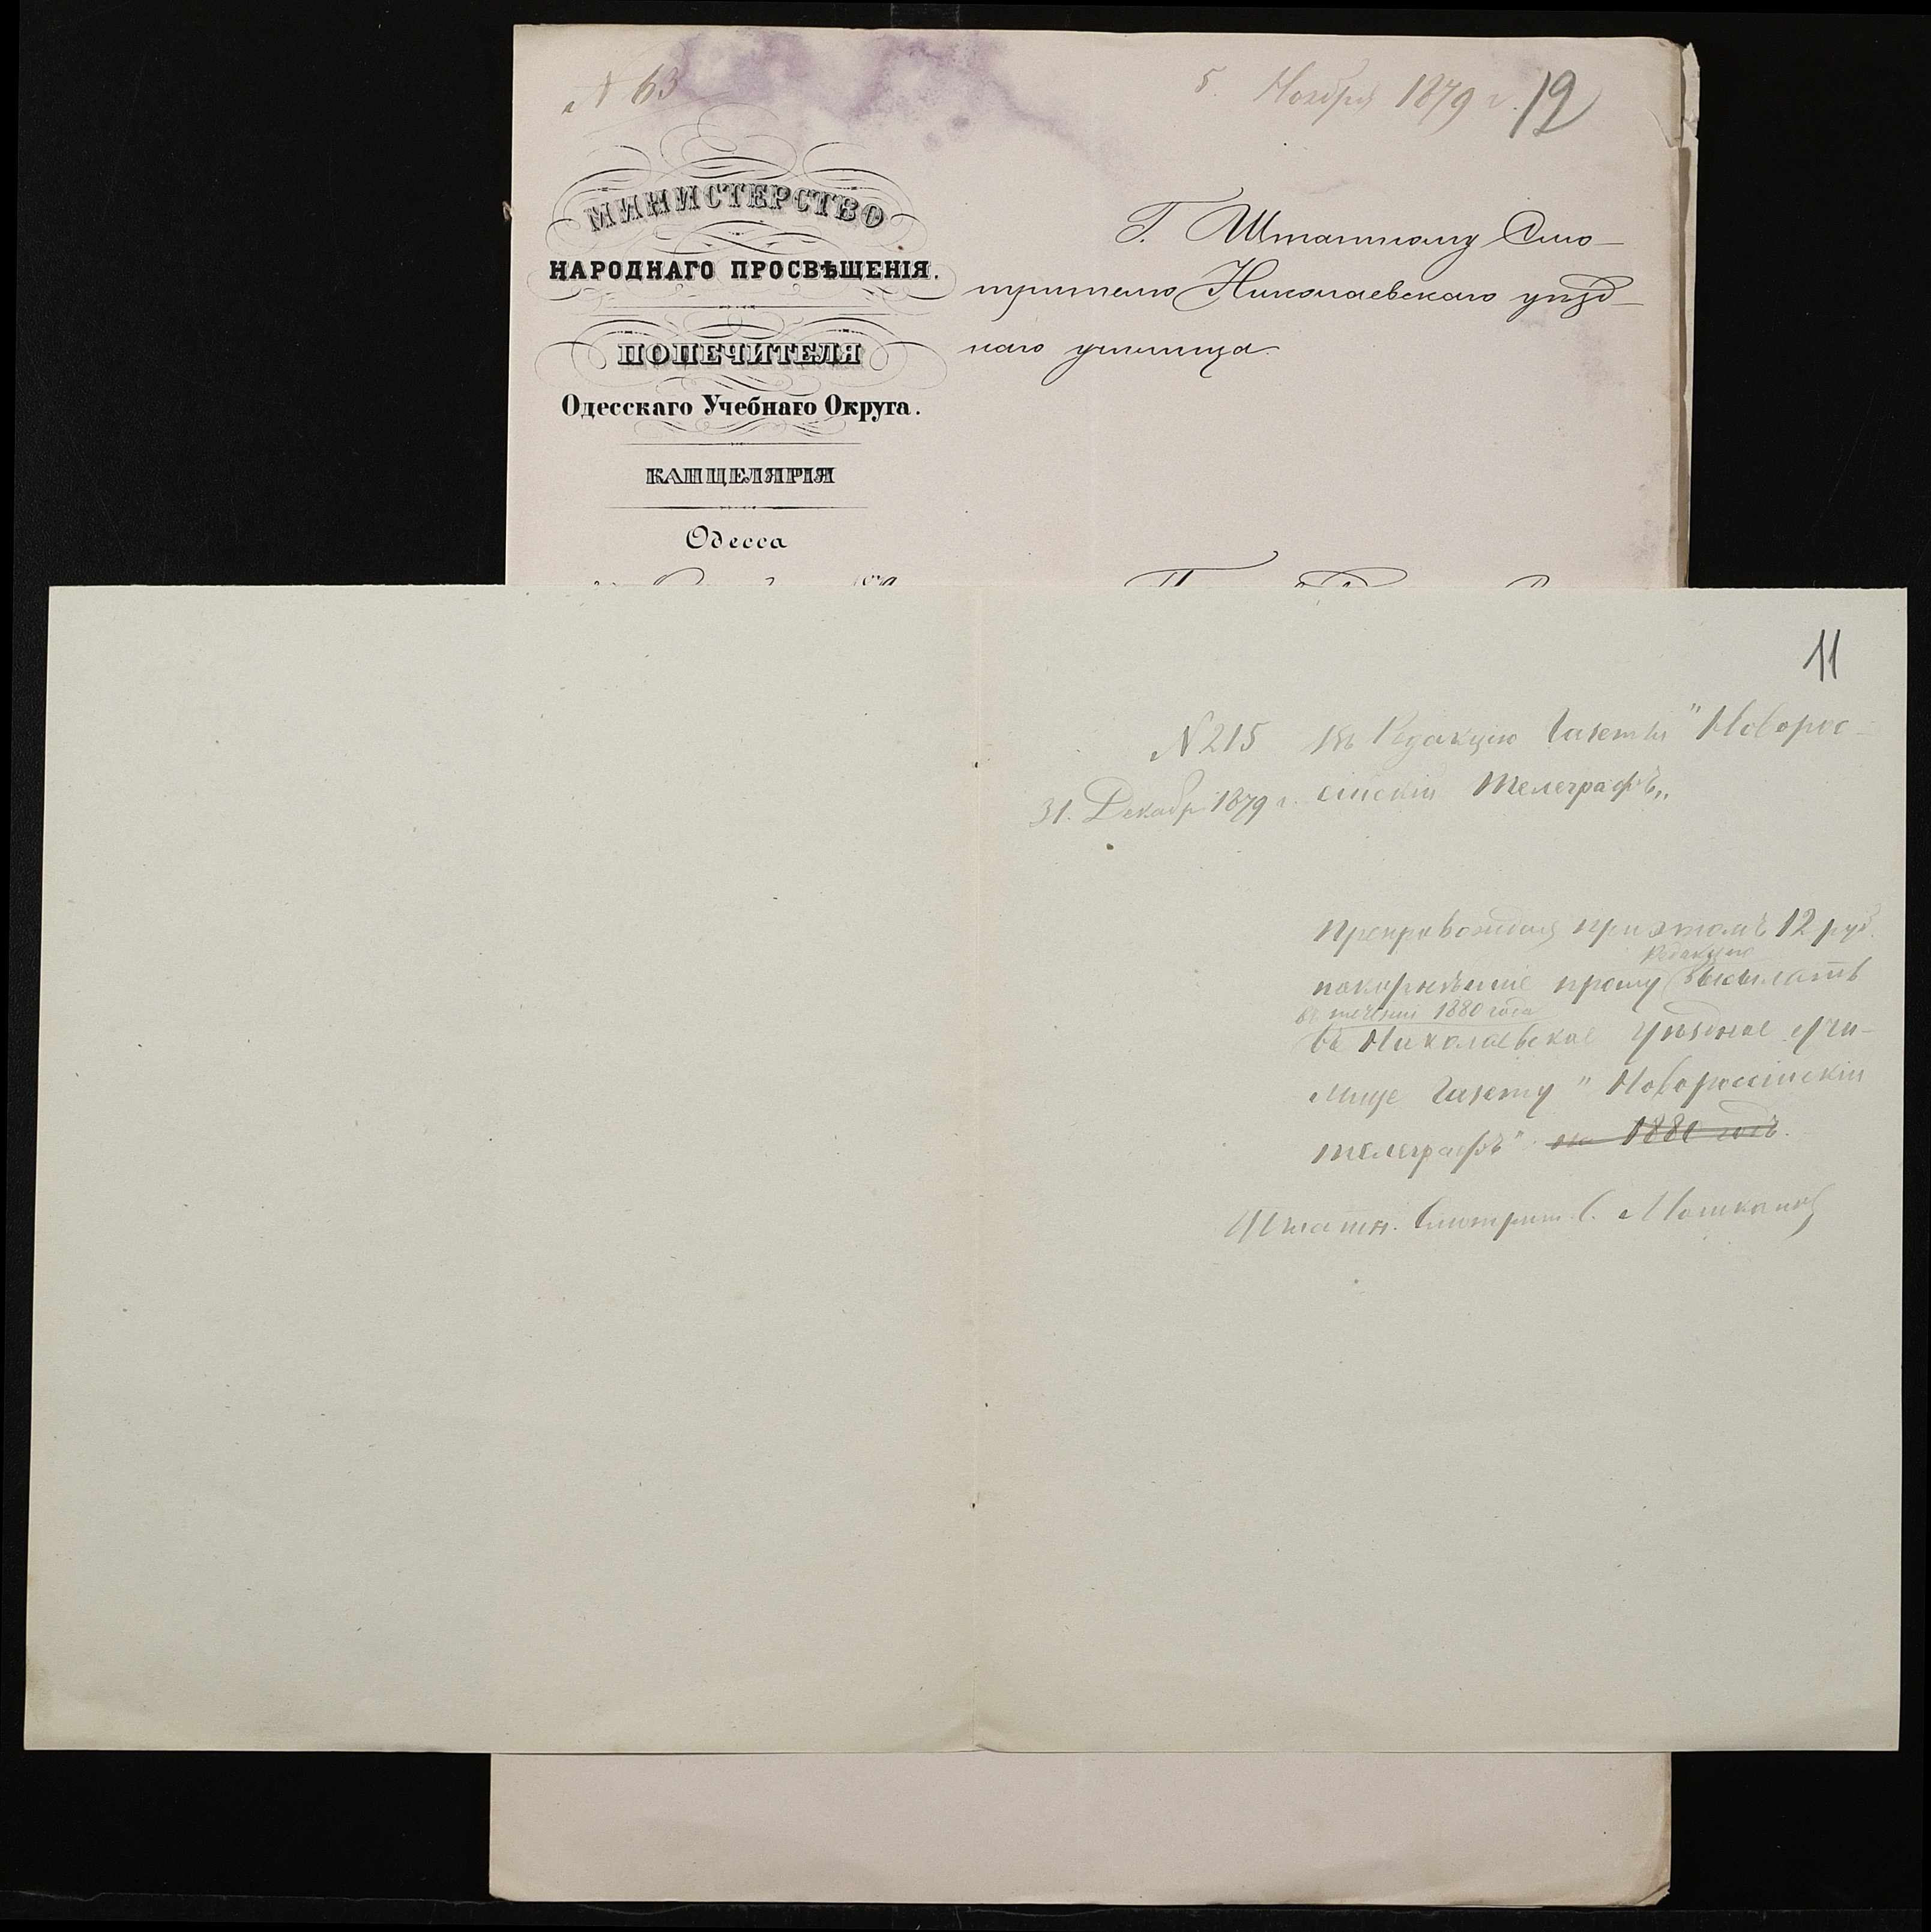 № 63
5. Ноября 1879 г. 12
МИНИСТЕРСТВО
НАРОДНАГО ПРОСВѢЩЕНІЯ.
ПОПЕЧИТЕЛЯ
Одесскаго Учебнаго Округа.
КАНЦЕЛЯРІЯ
Одесса
Г. Штатному Смо-
трителю Николаевскаго уѣзд-
наго училища.
11
№ 215
31. Декабр 1879 г.
Въ Редакцію Газеты "Новорос-
сійскій Телеграфъ„
Препровождая при этомъ 12 руб.
покорнѣйше прошу Редакцію высылать
въ теченіи 1880 года
въ Николаевское Уѣздное Учи-
лище Газету "Новороссійскій
телеграфъ" на 1880 годъ.
Штатн. Смотрит. С.